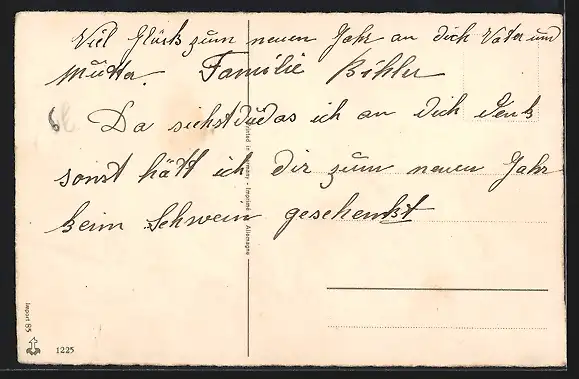 Viel Glück zum neuen Jahr an dich Vater und
Mutter. Familie Bihler
Da siehst du das ich an dich denk
sonst hätt ich dir zum neuen Jahr
keim Schwein geschenkt
Printed in Germany - Imprimé Allemagne
Import 85
1225